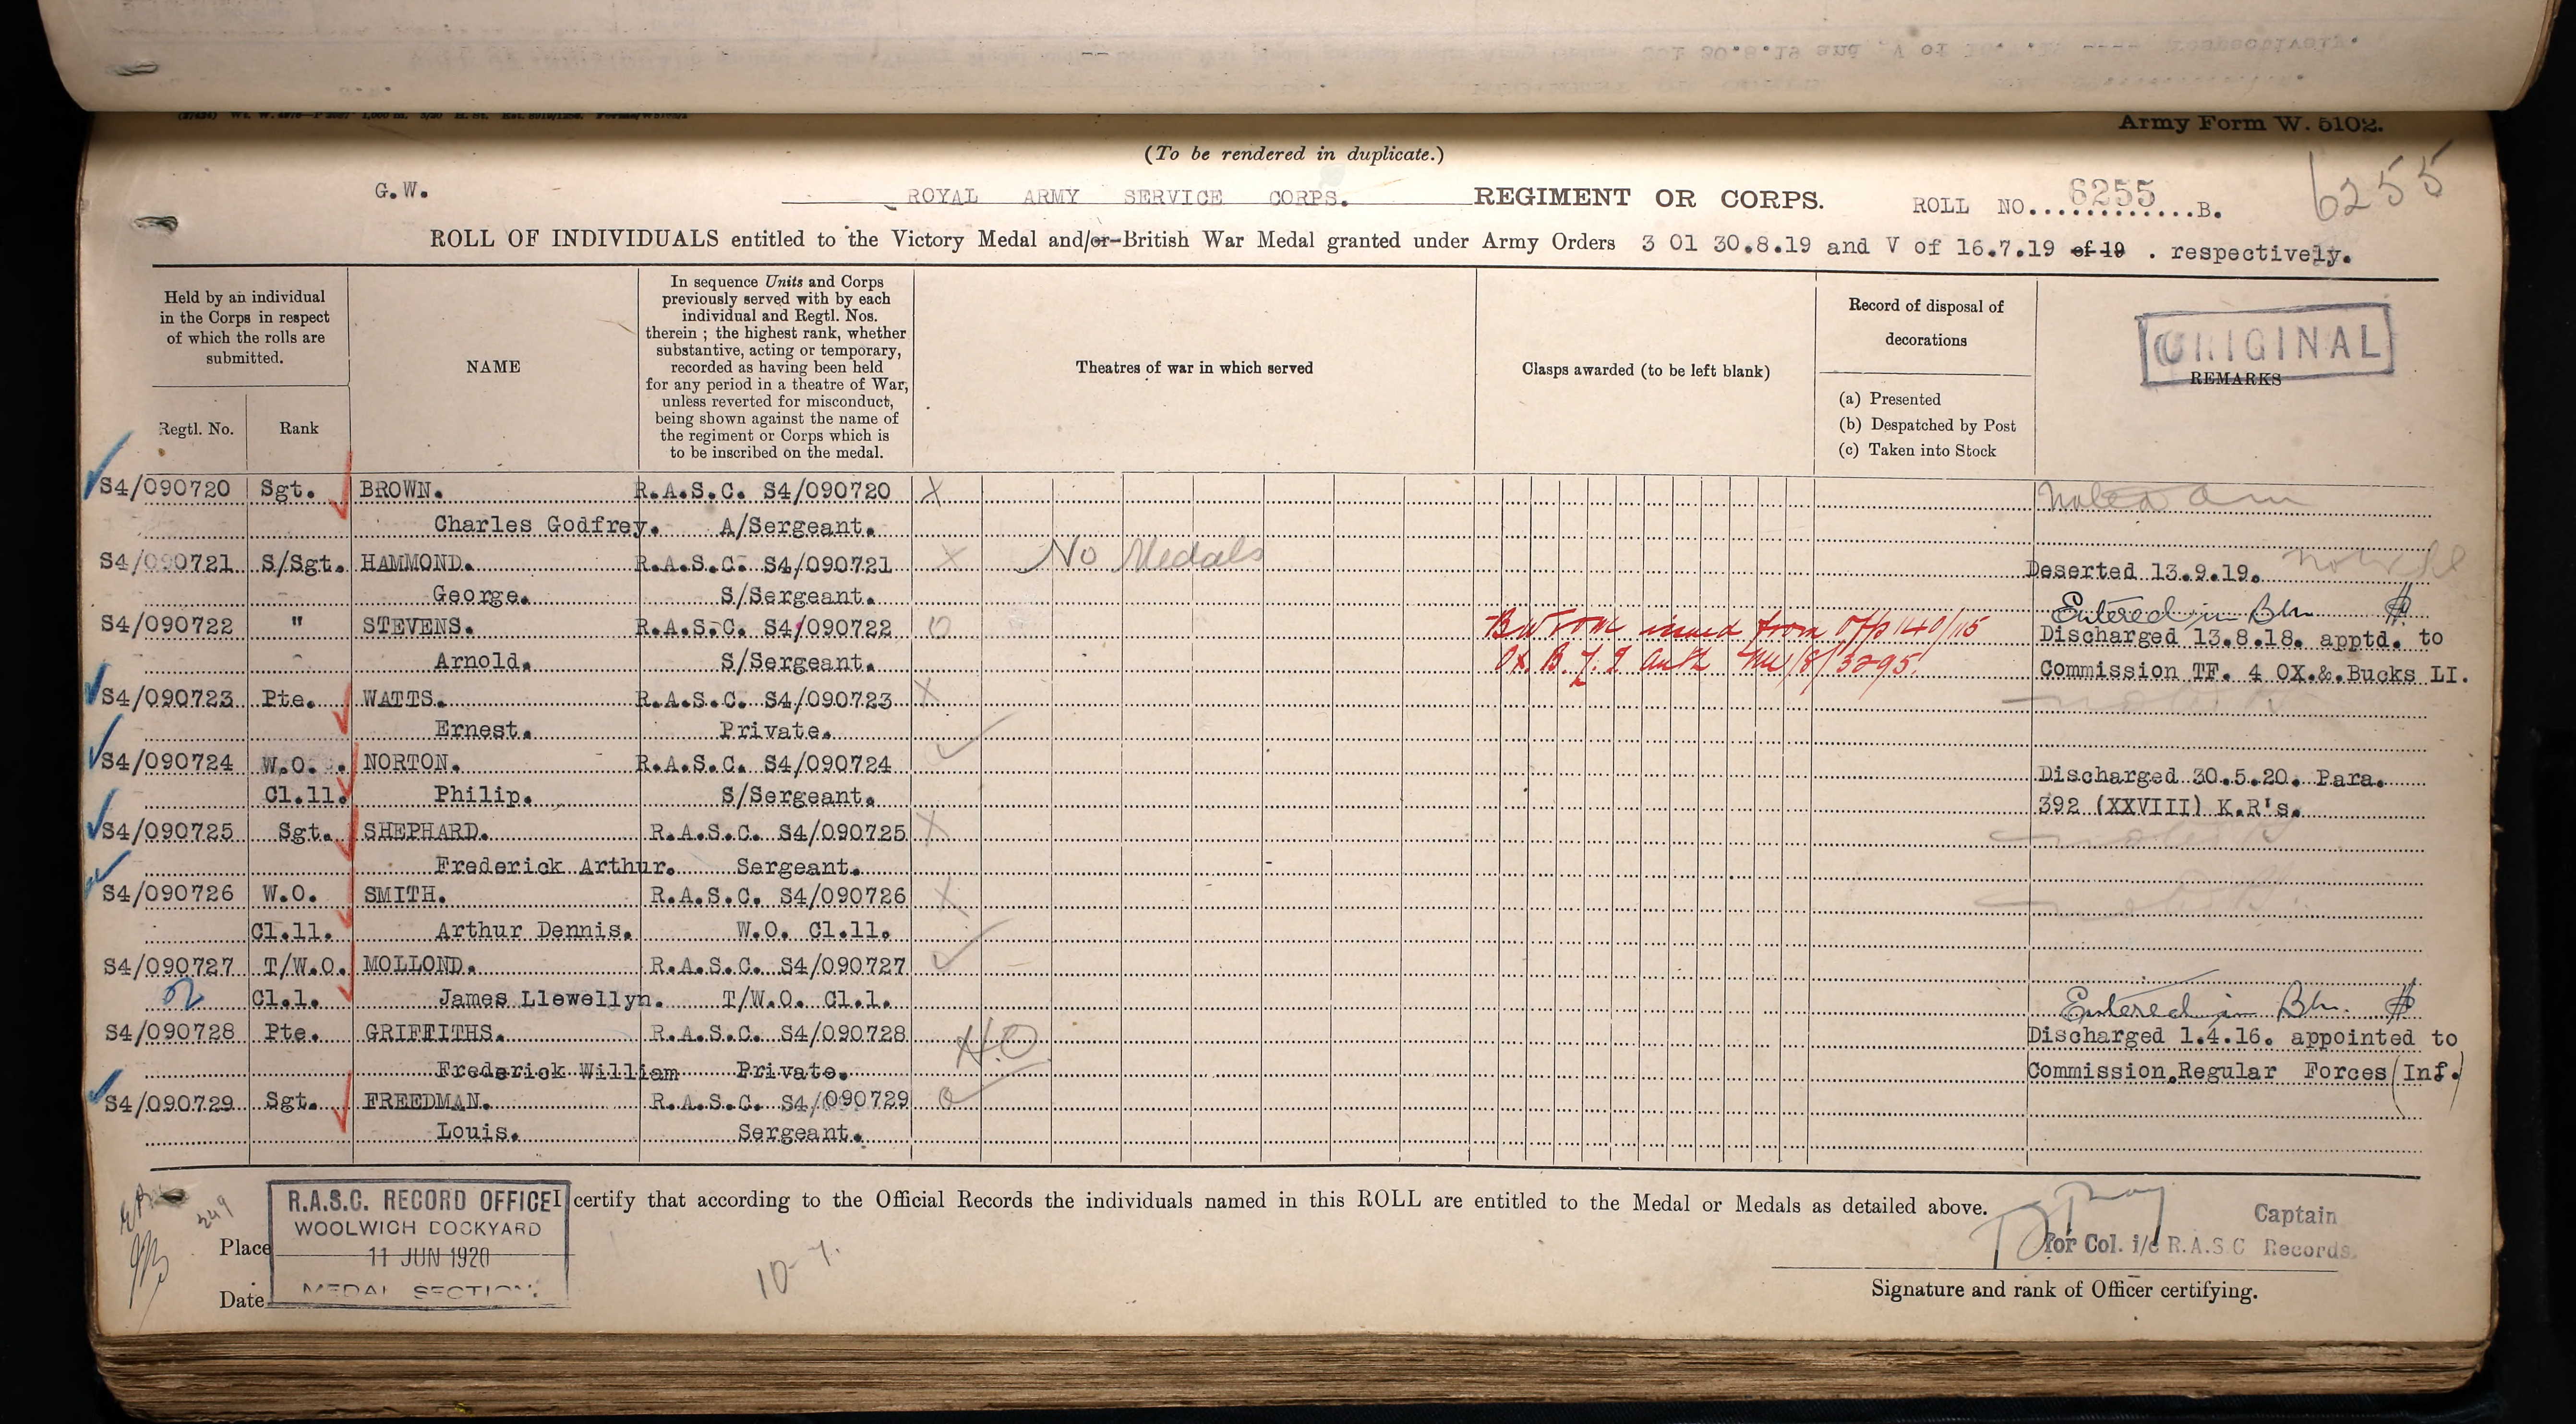 Army Form W. 5102.
(To be rendered in duplicate.)
6255
G.W. ROYAL ARMY SERVICE CORPS. REGIMENT OR CORPS. ROLL NO. 6255 B.
ROLL OF INDIVIDUALS entitled to the Victory Medal and/or British War Medal granted under Army Orders 3 01 30.8.19 and V of 16.7.19 of 19 . respectively.
Held by an individual
in the Corps in respect
of which the rolls are
submitted.
Regtl. No.
Rank
NAME
In sequence Units and Corps
previously served with by each
individual and Regtl. Nos.
therein ; the highest rank, whether
substantive, acting or temporary,
recorded as having been held
for any period in a theatre of War,
unless reverted for misconduct,
being shown against the name of
the regiment or Corps which is
to be inscribed on the medal.
Theatres of war in which served
Clasps awarded (to be left blank)
Record of disposal of
decorations
(a) Presented
(b) Despatched by Post
(c) Taken into Stock
ORIGINAL
REMARKS
S4/090720 Sgt. BROWN. R.A.S.C. S4/090720 X
Charles Godfrey. A/Sergeant.
S4/090721 S/Sgt. HAMMOND. R.A.S.C. S4/090721 X No Medals Deserted 13.9.19.
George. S/Sergeant.
Entered in
S4/090722 " STEVENS. R.A.S.C. S4/090722 O issued from Off 140/115 Discharged 13.8.18. apptd. to
Arnold. S/Sergeant. Commission TF. 4 OX.&.Bucks LI.
S4/090723 Pte. WATTS. R.A.S.C. S4/090723 X
Ernest. Private.
S4/090724 W.O. NORTON. R.A.S.C. S4/090724 Discharged 30.5.20. Para.
Cl.11. Philip. S/Sergeant. 392 (XXVIII) K.R's.
S4/090725 Sgt. SHEPHARD. R.A.S.C. S4/090725 X
Frederick Arthur. Sergeant.
S4/090726 W.O. SMITH. R.A.S.C. S4/090726 X
Cl.11. Arthur Dennis. W.O. Cl.11.
S4/090727 T/W.O. MOLLOND. R.A.S.C. S4/090727
Cl.1. James Llewellyn. T/W.O. Cl.1.
Entered in
S4/090728 Pte. GRIFFITHS. R.A.S.C. S4/090728 Discharged 1.4.16. appointed to
Frederick William Private. Commission.Regular Forces (Inf.)
S4/090729 Sgt. FREEDMAN. R.A.S.C. S4/090729
Louis. Sergeant.
I certify that according to the Official Records the individuals named in this ROLL are entitled to the Medal or Medals as detailed above.
R.A.S.C. RECORD OFFICE
WOOLWICH DOCKYARD
11 JUN 1920
MEDAL SECTION.
Place
Date
Captain
for Col. i/c R.A.S.C Records.
Signature and rank of Officer certifying.